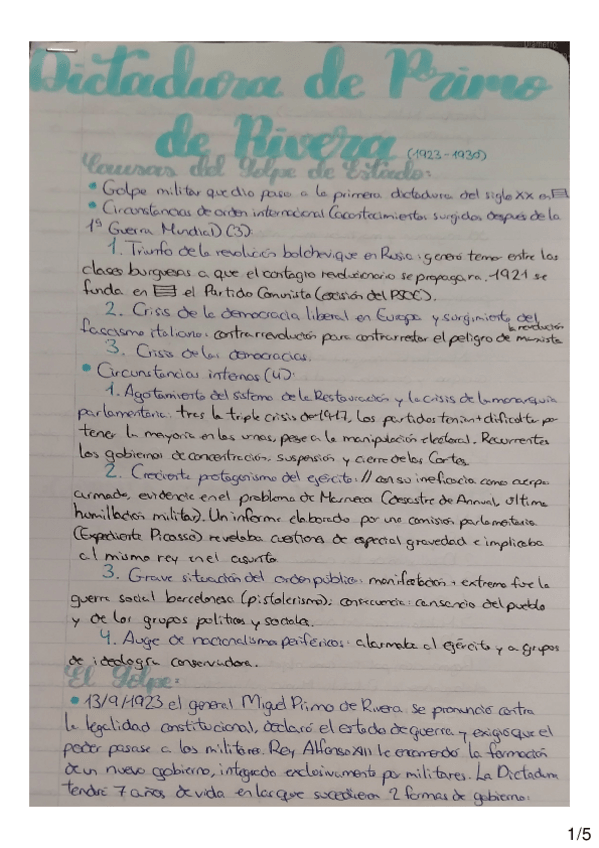 Dictadura de Primo
de Rivera (1923-1930)
Causas del Golpe de Estado:
• Golpe militar que dio paso a la primera dictadura del siglo XX en
• Circunstancias de orden internacional (acontecimientos surgidos después de la
1ª Guerra Mundial) (3):
1. Triunfo de la revolución bolchevique en Rusia: generó temor entre las
clases burguesas a que el contagio revolucionario se propagara. 1921 se
funda en el Partido Comunista (escisión del PSOE).
2. Crisis de la democracia liberal en Europa y surgimiento del
fascismo italiano: contrarrevolución para contrarrestar el peligro de la revolución
3. Crisis de las democracias.
• Circunstancias internas (4):
1. Agotamiento del sistema de la Restauración y la crisis de la monarquía
parlamentaria: tras la triple crisis de 1917, los partidos tenían + dificultad para
tener la mayoría en las urnas, pese a la manipulación electoral. Recurrentes
los gobiernos de concentración, suspensión y cierre de las Cortes.
2. Creciente protagonismo del ejército: // con su ineficacia como cuerpo
armado, evidencia en el problema de Marruecos (desastre de Annual, última
humillación militar). Un informe elaborado por una comisión parlamentaria
(Expediente Picasso) revelaba cuestiones de especial gravedad e implicaba
al mismo rey en el asunto.
3. Grave situación del orden público: manifestación + extrema fue la
guerra social barcelonesa (pistolerismo); consecuencia: cansancio del pueblo
y de los grupos políticos y sociales.
4. Auge de nacionalismos periféricos: alarmaba al ejército y a grupos
de ideología conservadora.
El Golpe:
• 13/9/1923 el general Miguel Primo de Rivera se pronunció contra
la legalidad constitucional, declaró el estado de guerra y exigió que el
poder pasase a los militares. Rey Alfonso XIII le encomendó la formación
de un nuevo gobierno, integrado exclusivamente por militares. La Dictadura
tendrá 7 años de vida en las que sucedieron 2 formas de gobierno:
1/5